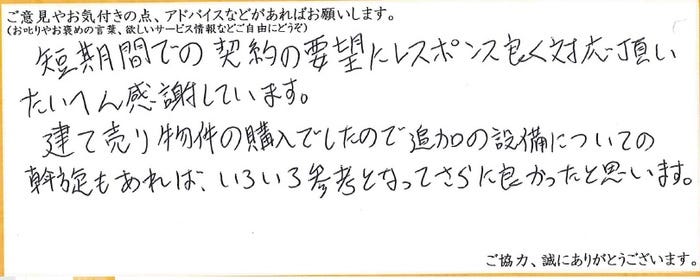 ご意見やお気付きの点、アドバイスなどがあればお願いします。
(お叱りやお褒めの言葉、欲しいサービス情報などご自由にどうぞ)
短期間での契約の要望にレスポンス良く対応頂い
たいへん感謝しています。
建て売り物件の購入でしたので追加の設備についての
斡旋もあれば、いろいろ参考となってさらに良かったと思います。
ご協力、誠にありがとうございます。